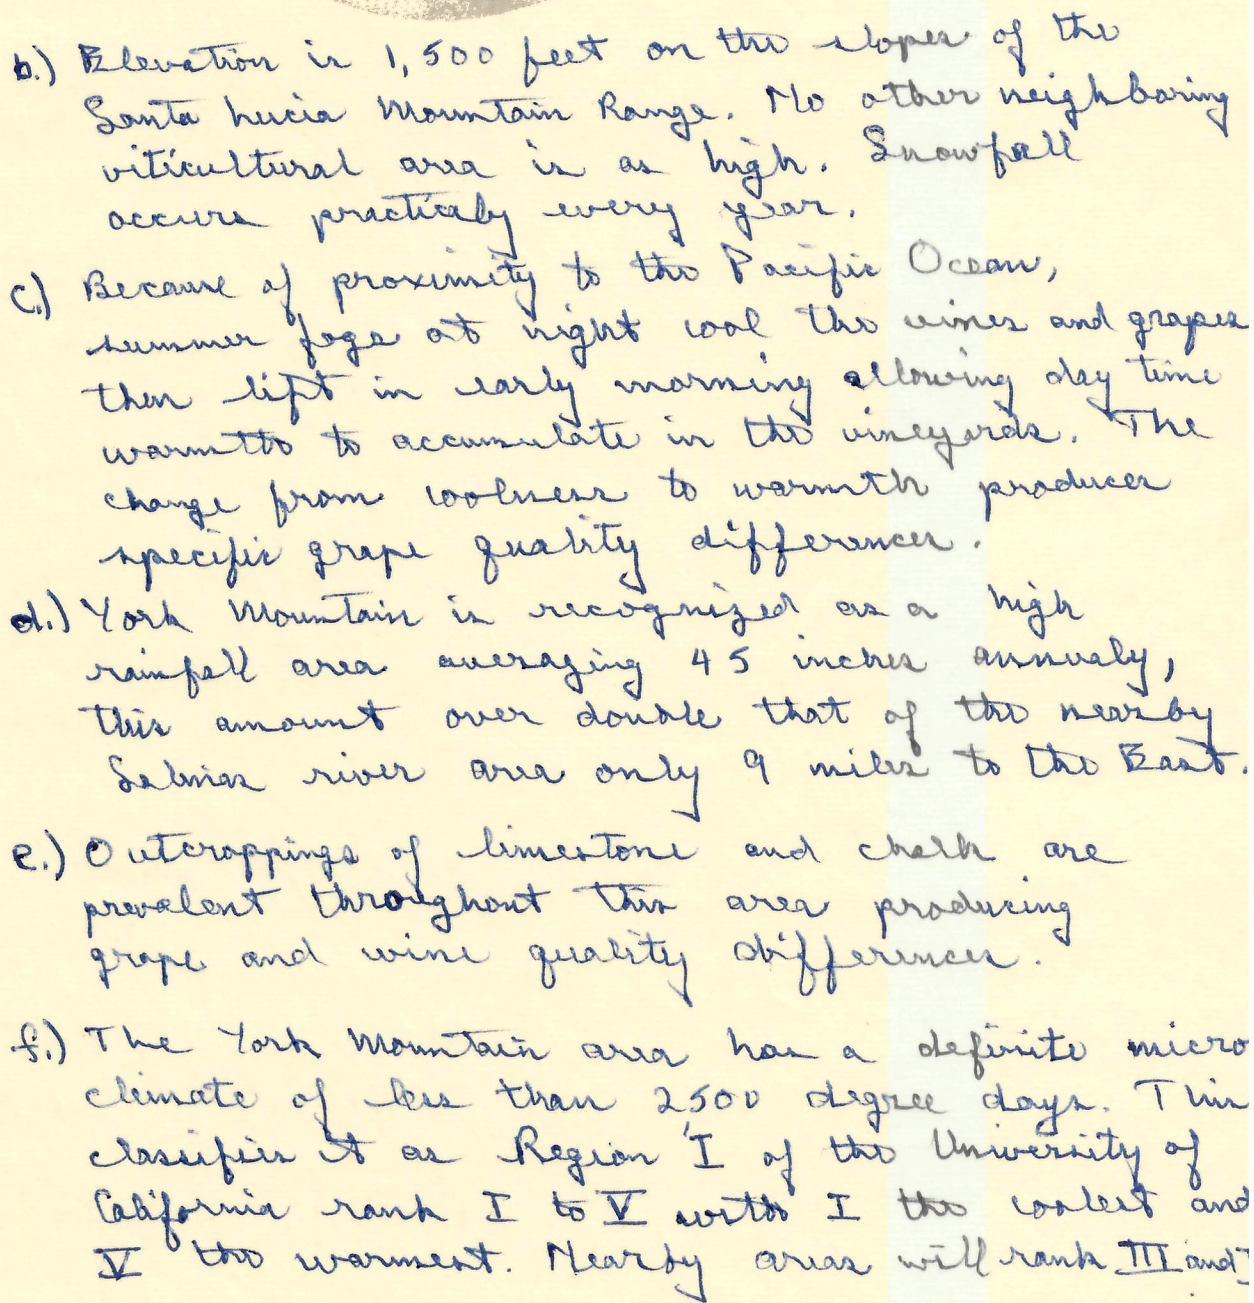 b.) Elevation is 1,500 feet on the slopes of the
Santa Lucia Mountain Range. No other neighboring
viticultural area is as high. Snowfall
occurs practicaly every year.
c.) Because of proximity to the Pacific Ocean,
summer fogs at night cool the vines and grapes
then lift in early morning allowing day time
warmth to accumulate in the vineyards. The
change from coolness to warmth produces
specific grape quality differences.
d.) York Mountain is recognized as a high
rainfall area averaging 45 inches annualy,
this amount over double that of the nearby
Salinas river area only 9 miles to the East.
e.) Outcroppings of limestone and chalk are
prevalent throughout this area producing
grape and wine quality differences.
f.) The York Mountain area has a definite micro
climate of less than 2500 degree days. This
classifies it as Region I of the University of
California rank I to V with I the coolest and
V the warmest. Nearby areas will rank III and